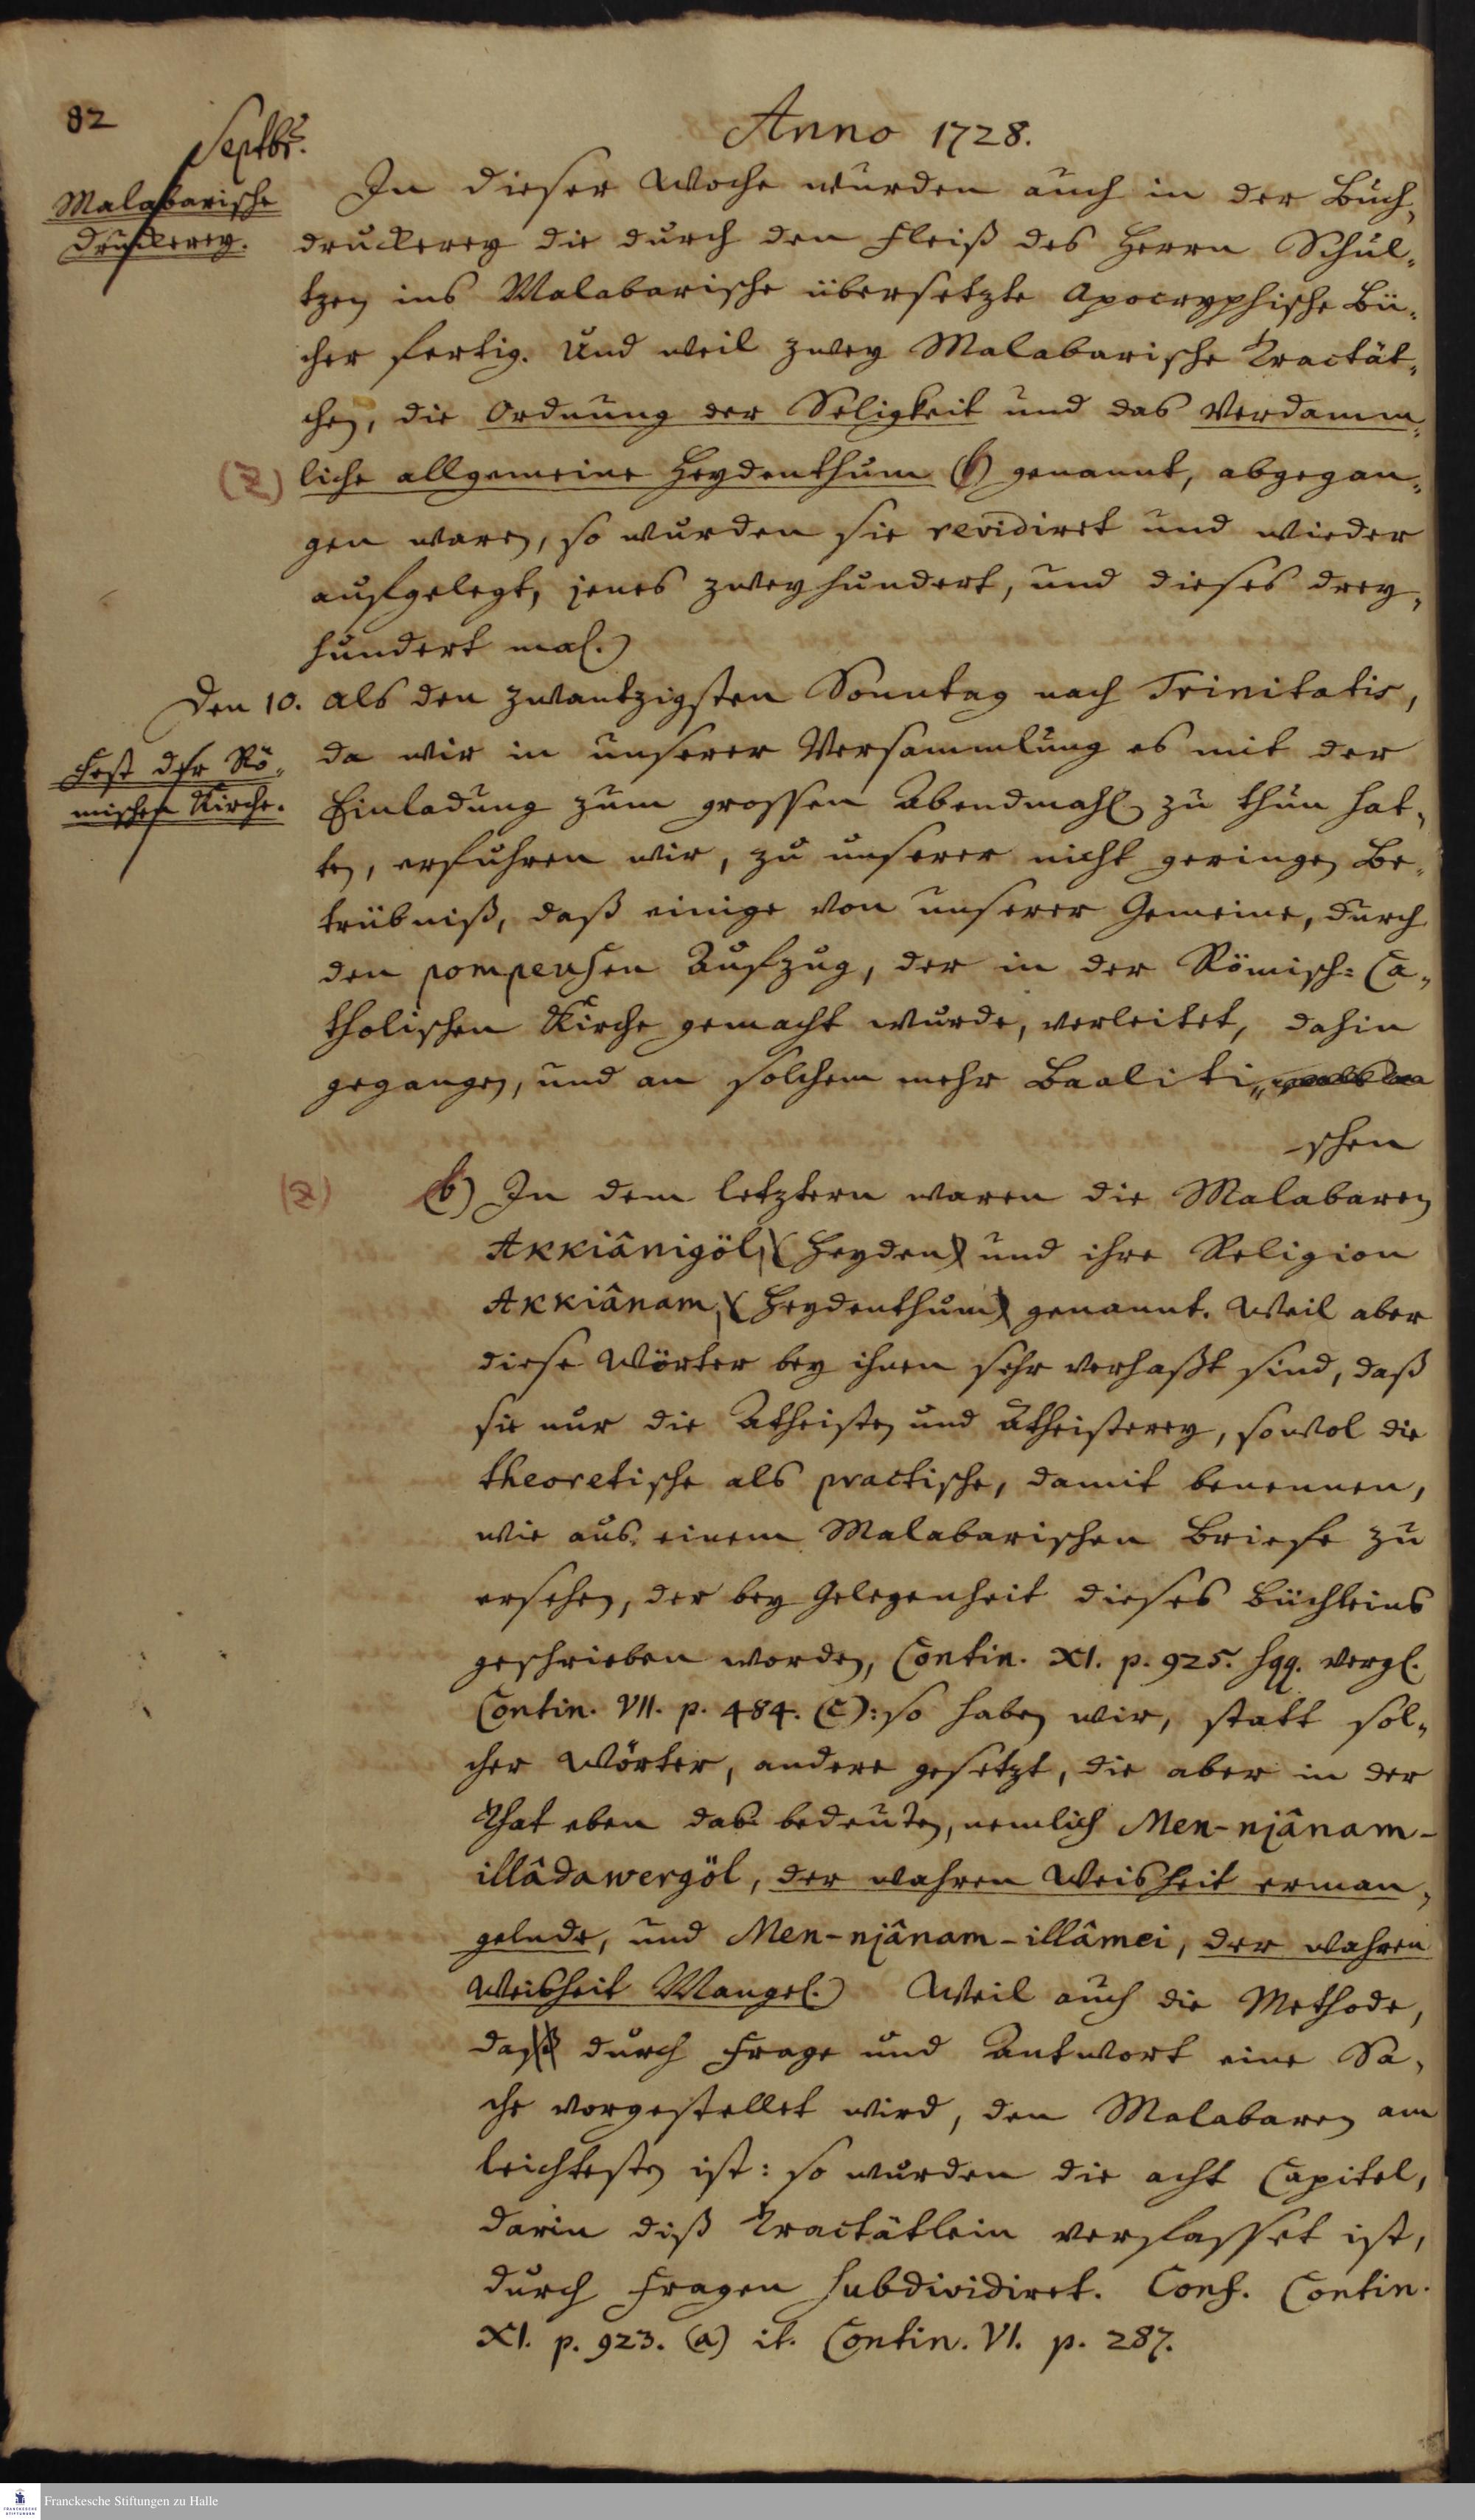 82
Septbr.
Anno 1728.
Malabarische
Druckerey.
In dieser Woche wurden auch in der Buch-
druckerey die durch den Fleiß des Herrn Schul-
tzen ins Malabarische übersetzte Apocryphische Bü-
cher fertig. Und weil zwey Malabarische Tractät-
chen, die Ordnung der Seligkeit und das Verdamm-
(z) liche allgemeine Heydenthum (b) genannt, abgegan-
gen waren, so wurden sie revidiret und wieder
aufgelegt, jenes zweyhundert, und dieses drey-
hundert mal.)
Den 10. als den zwantzigsten Sonntag nach Trinitatis,
Fest der Rö-
mischen Kirche.
da wir in unserer Versammlung es mit der
Einladung zum grossen Abendmahl zu thun hat-
ten, erfuhren wir, zu unserer nicht geringen Be-
trübniß, daß einige von unserer Gemeine, durch
den pompeusen Aufzug, der in der Römisch-Ca-
tholischen Kirche gemacht wurde, verleitet, dahin
gegangen, und an solchem mehr Baaliti-
schen
(z) (b) In dem letztern waren die Malabaren
Akkiânigöl, (Heyden) und ihre Religion
Akkiânam, (Heydenthum) genannt. Weil aber
diese Wörter bey ihnen sehr verhaßt sind, daß
sie nur die Atheisten und Atheisterey, sowol die
theoretische als practische, damit benennen,
wie aus einem Malabarischen Briefe zu
ersehen, der bey Gelegenheit dieses Büchleins
geschrieben worden, Contin. XI. p. 925. sqq. vergl.
Contin. VII. p. 484. (c): so haben wir, statt sol-
cher Wörter, andere gesetzt, die aber in der
That eben das bedeuten, nemlich Men-njânam-
illâdawergöl, der wahren Weisheit erman-
gelnde, und Men-njânam-illâmei, der wahren
Weisheit Mangel.) Weil auch die Methode,
daß durch Frage und Antwort eine Sa-
che vorgestellet wird, den Malabaren am
leichtesten ist: so wurden die acht Capitel,
darin diß Tractätlein verfasset ist,
durch Fragen subdividiret. Conf. Contin.
XI. p. 923. (a) it. Contin. VI. p. 287.
Franckesche Stiftungen zu Halle